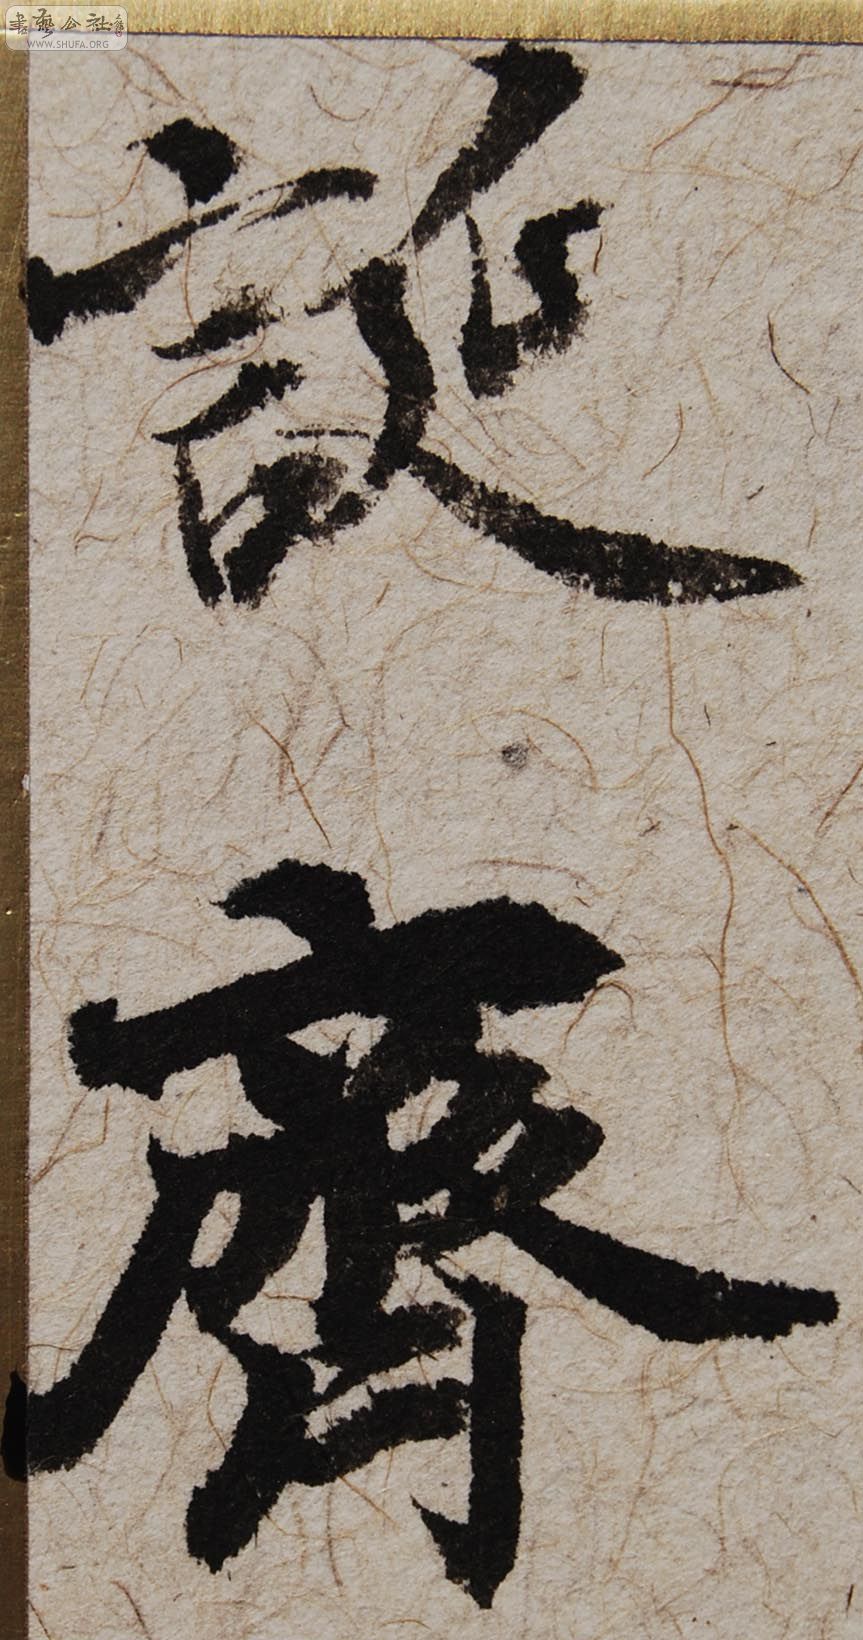 書藝公社
WWW.SHUFA.ORG
誕齊